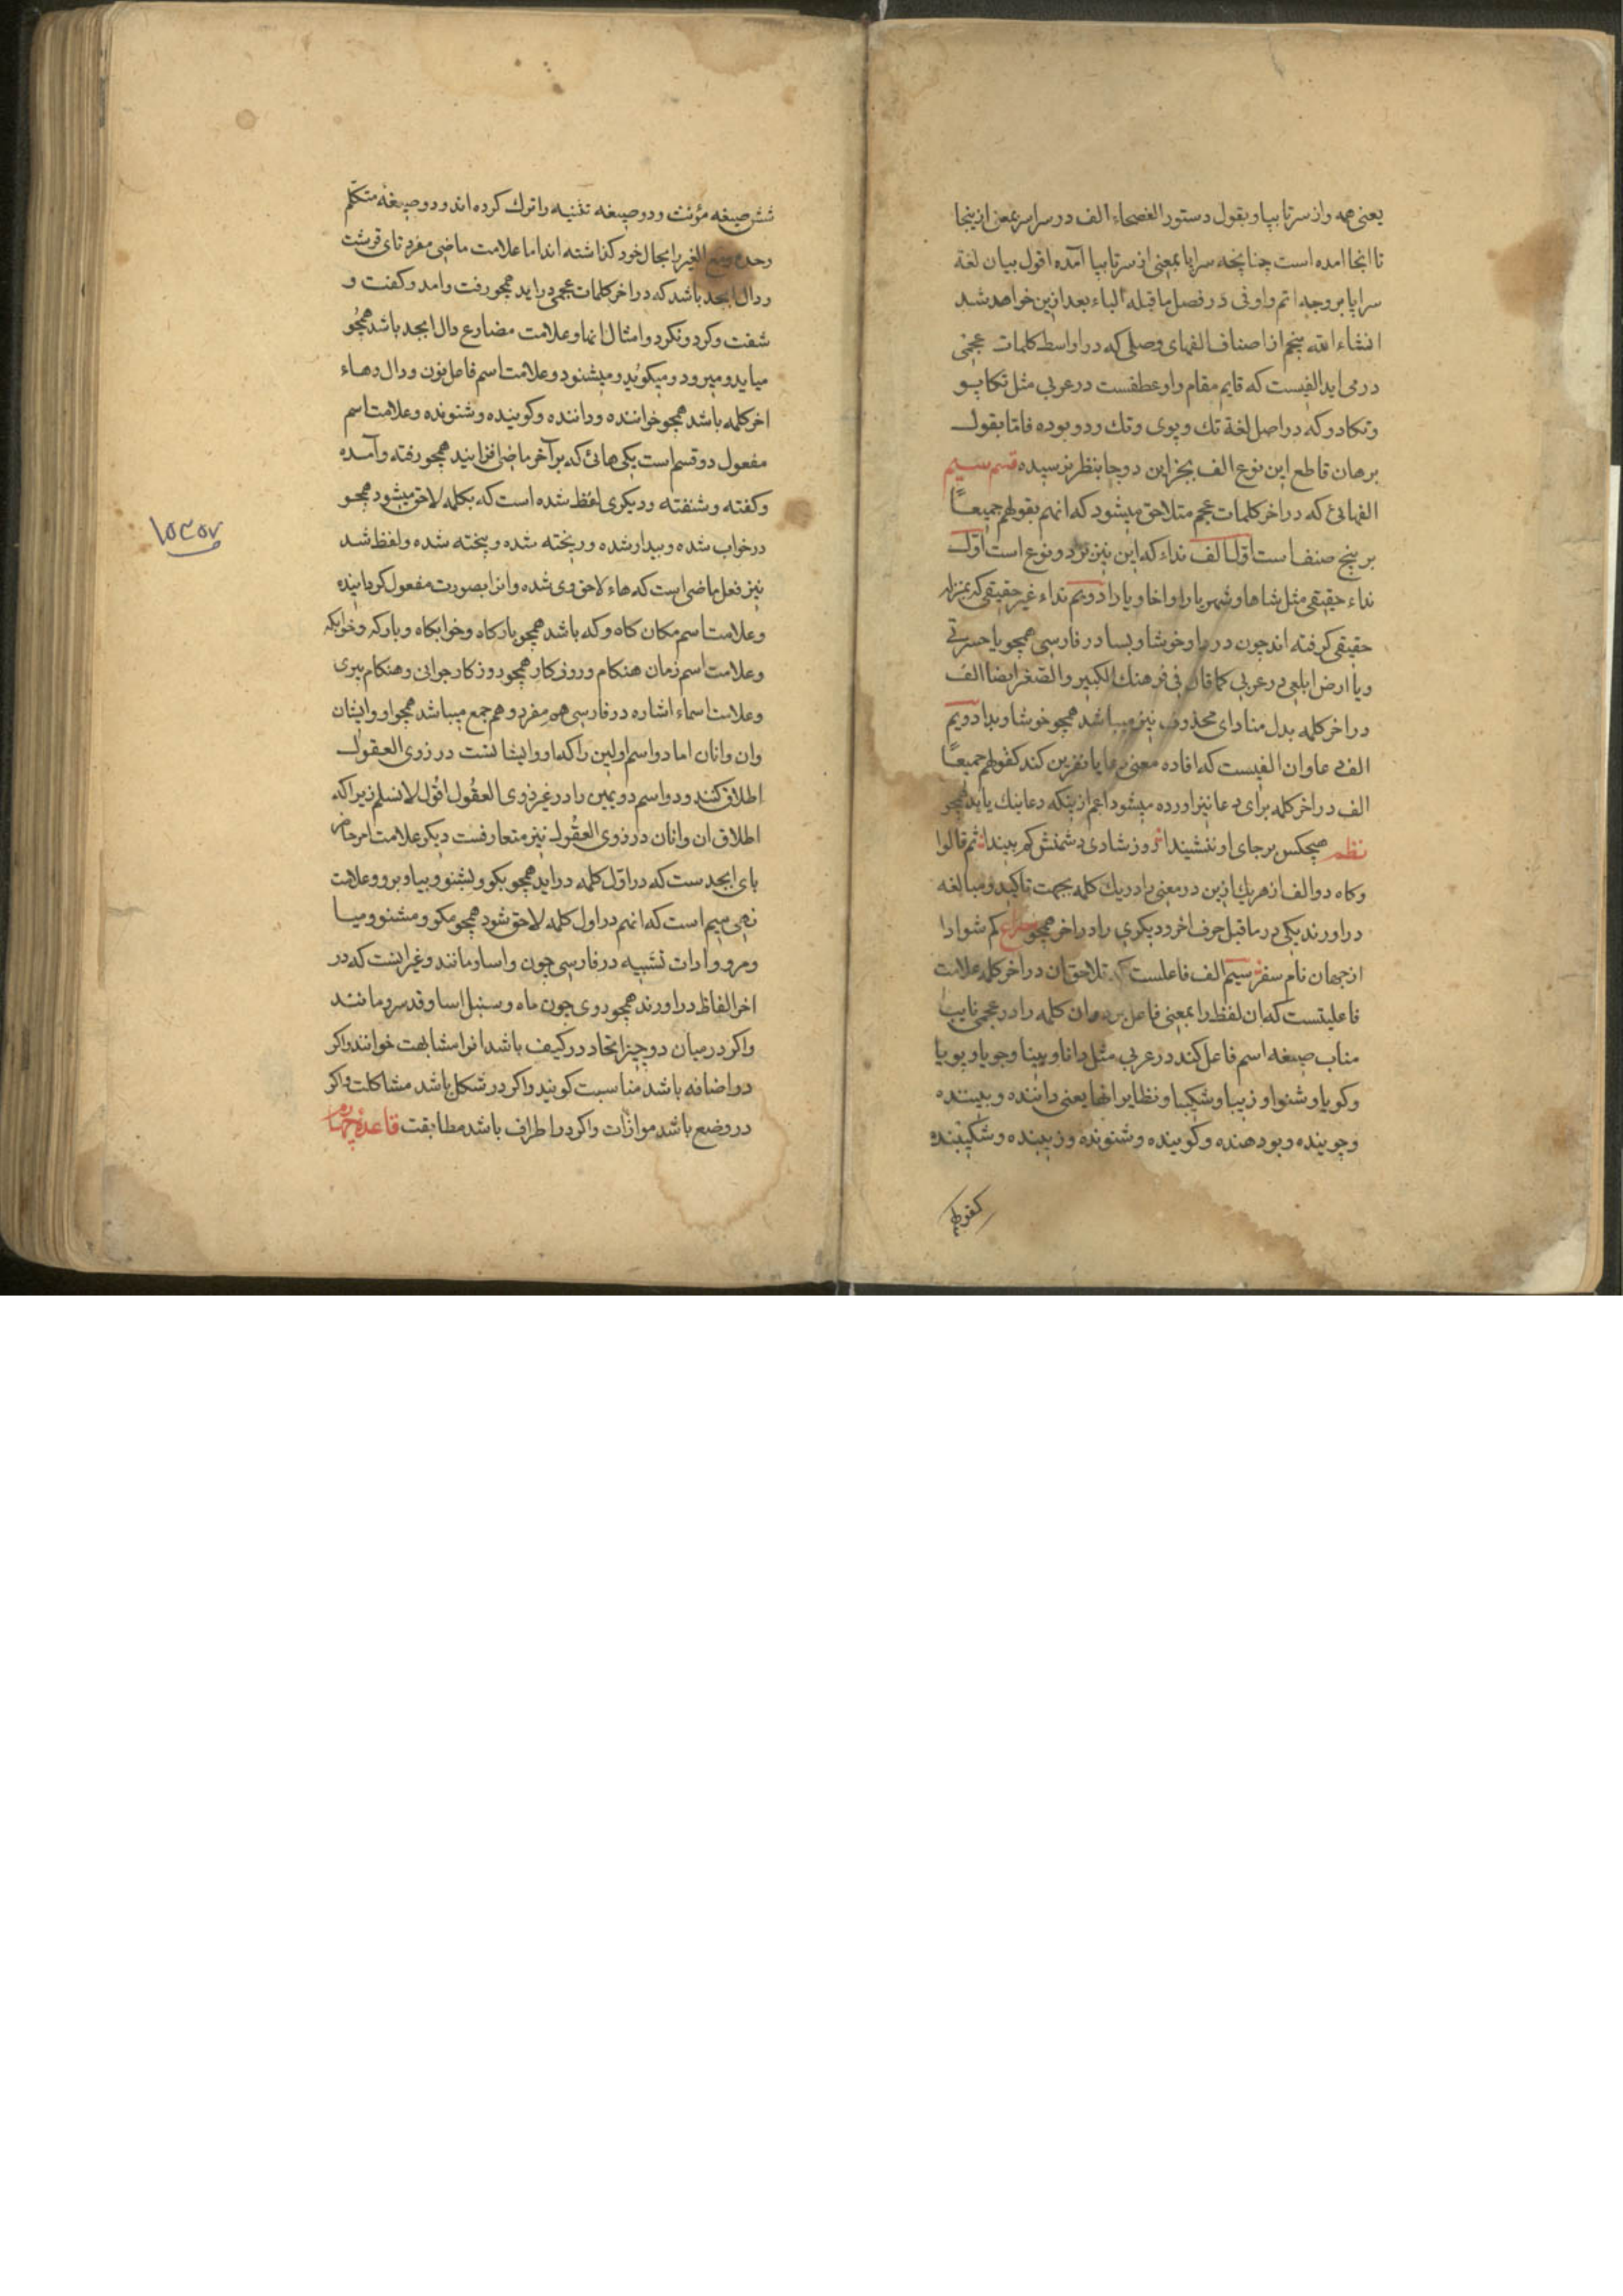 یعنی همه واز سرتا بپا وبقول دستور الفصحاء الف در سراسر بمعنی ازینجا
تا انجا امده است چنانچه سراپا بمعنی از سرتا بپا آمده اقول بیان لغة
سراپا بر وجه اتم واوفی در فصل ماقبله الباء بعد ازین خواهد شد
انشاء الله پنجم از اصناف الفهای وصلی که در اواسط کلمات عجمی
در می اید الفیست که قایم مقام واو عطفست در عربی مثل تکاپو
وتکادو که در اصل لغة تك وپوی وتك ودو بوده فاما بقول
برهان قاطع این نوع الف بجز این دو جا بنظر نرسیده قسم سیم
الفهائی که در اخر کلمات عجم متلاحق میشود که انهم بقولهم جمیعًا
بر پنج صنف است اول الف نداء که این نیز بر دو نوع است اول
نداء حقیقی مثل شاها وشهریارا واخا ویارا دویم نداء غیر حقیقی که بمنزله
حقیقی گرفته اند چون دردا وخوشا وبسا در فارسی همچو یا حسرتی
ویا ارض ابلعی در عربی کما قال فی فرهنك الکبیر والصغیر ایضا الف
در اخر کلمه بدل منادای محذوف نیز میباشد همچو خوشا وبدا دویم
الف دعا وان الفیست که افاده معنی دعا یا نفرین کند کقولهم جمیعًا
الف در اخر کلمه برای دعا نیز اورده میشود اعم ازینکه دعا نیك یا بد همچو
نظم هیچکس بر جای او ننشیندا روز شادی دشمنش کم بیندا ثم قالوا
وکاه دو الف از هریك ازین دو معنی را در یك کلمه بجهت تاکید ومبالغه
در اورند یکی در ماقبل حرف اخر ودیکری را در اخر همچو کم شوادا
از جهان نام سفر سیم الف فاعلست که تلاحق ان در اخر کلمه علامت
فاعلیتست که ان لفظ را بمعنی فاعل برد وان کلمه را در عجمی نایب
مناب صیغه اسم فاعل کند در عربی مثل دانا وبینا وجویا وبویا
وکویا وشنوا وزیبا وشکیبا ونظایر انها یعنی داننده وبیننده
وجوینده وبودهنده وکوینده وشنونده وزیبنده وشکیبنده
کقولهم
شش صیغه مؤنث ودو صیغه تثنیه را ترك کرده اند ودو صیغه متکلم
وحده ومع الغیر را بحال خود کذاشته اند اما علامت ماضی مفرد تای قرشت
ودال ابجد باشد که در اخر کلمات عجمی دراید همچو رفت وامد وکفت و
شفت وکرد ونکرد وامثال انها وعلامت مضارع دال ابجد باشد همچو
میاید ومیرود ومیکوید ومیشنود وعلامت اسم فاعل نون ودال وهاء
اخر کلمه باشد همچو خواننده وداننده وکوینده وشنونده وعلامت اسم
مفعول دو قسم است یکی هائی که بر آخر ماضی افزایند همچو رفته وآمده
وکفته وشنفته ودیکری لفظ شده است که بکلمه لاحق میشود همچو
در خواب شده وبیدار شده وریخته شده وپخته شده ولفظ شد
نیز فعل ماضی است که هاء لاحق وی شده وانرا بصورت مفعول کردانیده
وعلامت اسم مکان کاه وکه باشد همچو بارکاه وخوابکاه وبارکه وخوابکه
وعلامت اسم زمان هنکام وروزکار همچو روزکار جوانی وهنکام پیری
وعلامت اسماء اشاره در فارسی هم مفرد وهم جمع میباشد همچو او وایشان
وان وانان اما دو اسم اولین را که او وایشانست در ذوی العقول
اطلاق کنند ودو اسم دویمین را در غیر ذوی العقول اقول لا نسلم زیراکه
اطلاق ان وانان در ذوی العقول نیز متعارفست دیکر علامت امر حاضر
بای ابجدست که در اول کلمه دراید همچو بکو وبشنو وبیا وبرو وعلامت
نهی میم است که انهم در اول کلمه لاحق شود همچو مکو ومشنو ومیا
ومرو وادات تشبیه در فارسی چون واسا ومانند وغیر اینست که در
اخر الفاظ دراورند همچو روی چون ماه وسنبل اسا وقد سرو مانند
واکر در میان دو چیز اتحاد در کیف باشد انرا مشابهت خوانند واکر
در اضافه باشد مناسبت کویند واکر در شکل باشد مشاکلت واکر
در وضع باشد موازات واکر در اطراف باشد مطابقت قاعدهٔ چهارم
۱۵۳۵۷